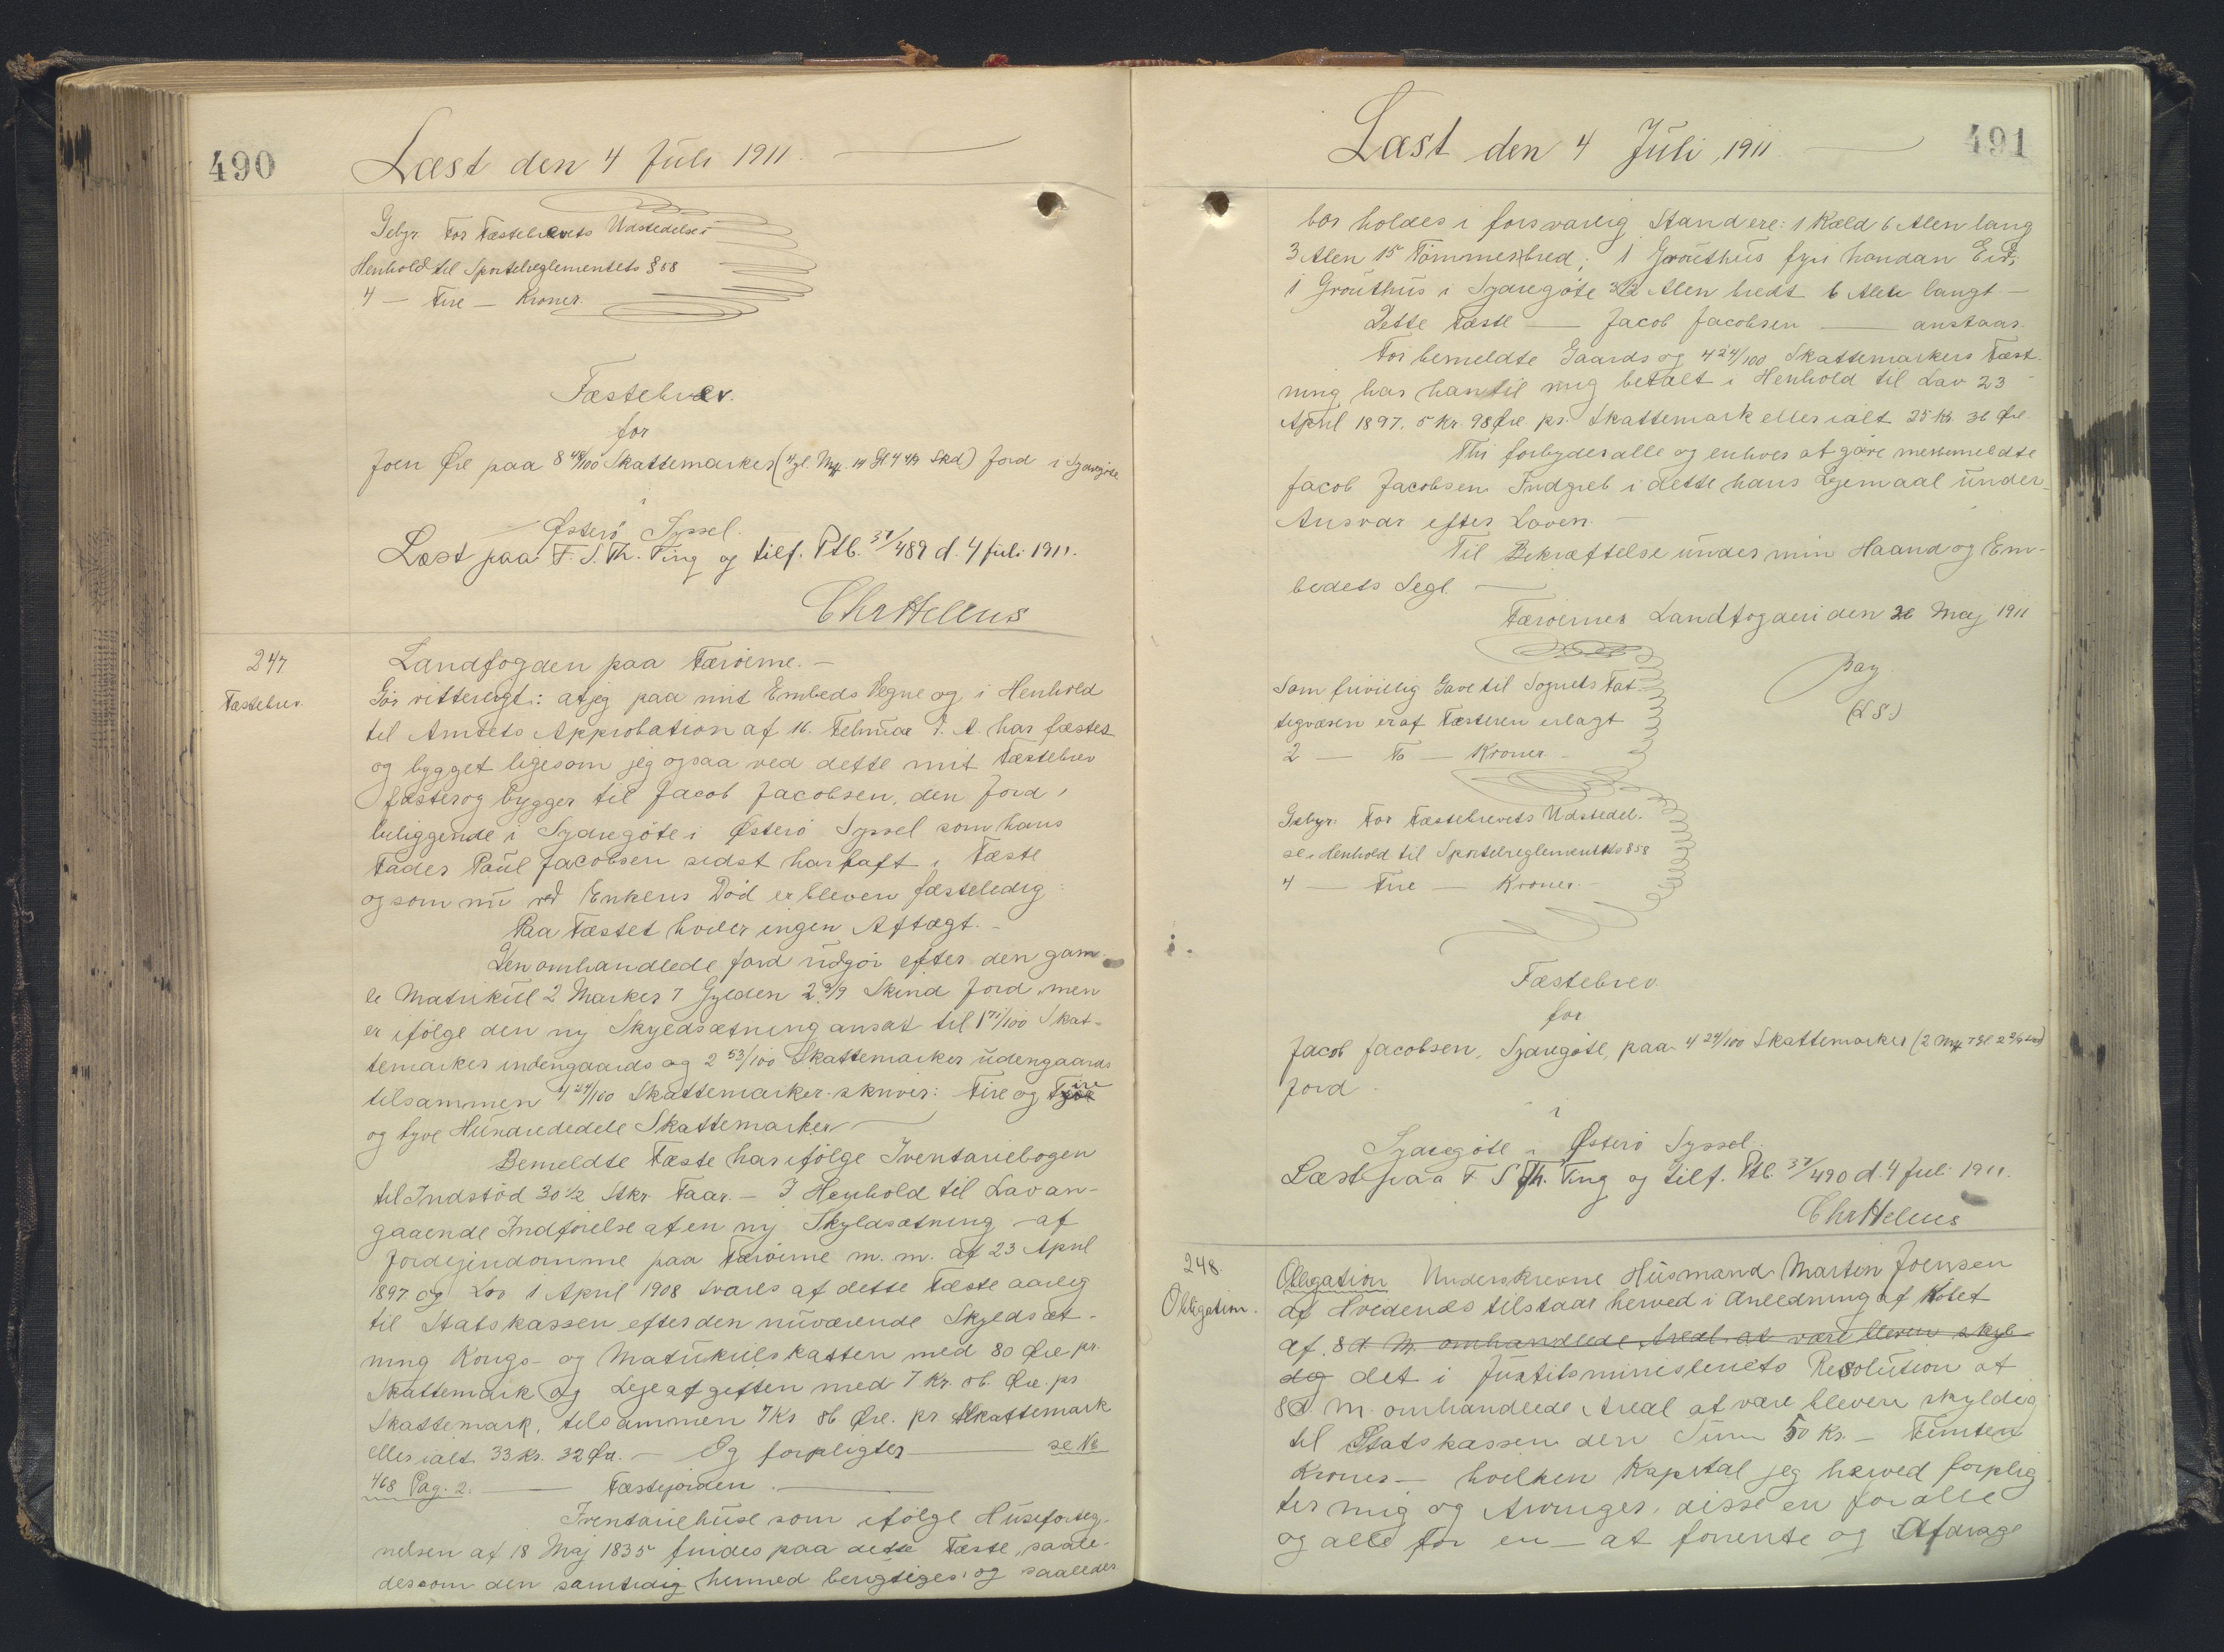 490
Læst den 4 Juli 1911.
Gebyr for Fæstebrevets Udstedelse i
Henhold til Sportelreglementets § 58
4 — Fire — Kroner.
Fæstebrev.
for
Joen Øre paa 8 48/100 Skattemarker (4 gl. Mk. 14 Gl 4 4/9 Skd) Jord i Sydregöte
i
Østerö Syssel.
Læst paa F. S. Th. Ting og tilf. Ptb. 37/489 d. 4 Juli 1911.
Chr Helms
247.
Fæstebrev.
Landfogden paa Færöerne. —
Gör vitterligt: at jeg paa mit Embeds Vegne og i Henhold
til Amtets Approbation af 16. Februar d. A. har fæstet
og bygget ligesom jeg ogsaa ved dette mit Fæstebrev
fæster og bygger til Jacob Jacobsen, den Jord,
beliggende i Sydregöte i Österö Syssel som hans
Fader Paul Jacobsen sidst har haft i Fæste
og som nu ved Enkens Död er bleven fæsteledig:
Paa Fæstet hviler ingen Aftægt. —
Den omhandlede Jord udgör efter den gam-
le Matrikul 2 Marker 7 Gylden 2 2/9 Skind Jord, men
er ifölge den ny Skyldsætning ansat til 1 71/100 Skat-
temarker indengaards og 2 53/100 Skattemarker udengaards
tilsammen 4 24/100 Skattemarker skriver: Fire og Fire
og tyve Hundrededele Skattemarker
Bemeldte Fæste har ifölge Inventariebogen
til Indstöd 30 1/2 Stkr Faar. — I Henhold til Lov an-
gaaende Indförelse af en ny Skyldsætning af
Jordejendomme paa Færöerne m. m. af 23 April
1897 og Lov 1 April 1908 svares af dette Fæste aarlig
til Statskassen efter den nuværende Skyldsæt-
ning Kongs- og Matrikulskatten med 80 Øre pr.
Skattemark og Lejeafgiften med 7 Kr. 06 Øre. pr
Skattemark, tilsammen 7 Kr 86 Øre. pr Skattemark
eller ialt 33 Kr. 32 Øre. — Og forpligter — se No
468 Pag. 2. — Fæstejorden. —
Inventariehuse som ifölge Huseforteg-
nelsen af 18 Maj 1835 findes paa dette Fæste, saale-
dessom den samtidig hermed berigtiges, og saaledes
491
Læst den 4 Juli 1911.
bör holdes i forsvarlig Stand ere: 1 Kæld 6 Alen lang
3 Alen 15 Tommer bred; 1 Grouthus fyri handan Eid;
1 Grouthus i Sydregöte 3 1/2 Alen bredt 6 Alen langt —
Dette Fæste — Jacob Jacobsen — anstaar.
For bemeldte Gaards og 4 24/100 Skattemarkers Fæst-
ning har han til mig betalt i Henhold til Lov 23
April 1897. 5 Kr. 98 Øre pr. Skattemark eller ialt 25 Kr. 36 Øre.
Thi forbydes alle og enhver at göre mernmeldte
Jacob Jacobsen Indgreb i dette hans Lejemaal under
Ansvar efter Loven. —
Til Bekræftelse under min Haand og Em-
bedets Segl. —
Færöernes Landfogderi den 26 Maj 1911
Som frivillig Gave til Sognets Fat-
tigvæsen er af Fæsteren erlagt
2 — To — Kroner —
(L S.)
Gebyr for Fæstebrevets Udstedel-
se i Henhold til Sportelreglementets § 58
4 — Fire — Kroner. —
Fæstebrev
for
Jacob Jacobsen, Sydregöte, paa 4 24/100 Skattemarker (2 Mk 7 Gl 2 2/9 Skd)
Jord.
i
Sydregöte i Österö Syssel.
Læst paa F. S Th. Ting og tilf. Ptb. 37/490 d. 4 Juli 1911.
Chr Helms
248.
Obligation.
Obligation Underskrevne Husmand Martin Joensen
af Hvidenæs tilstaar herved i Anledning af Köbet
af 8 d. M. omhandlede Areal at være bleven skyl-
dig det i Justitsministeriets Resolution af
8 d. M. omhandlede Areal at være bleven skyldig
til Statskassen den Sum 50 Kr. — Femten
Kroner — hvilken Kapital jeg herved forplig-
ter mig og Arvinger, disse en for alle
og alle for en — at forrente og Afdrage